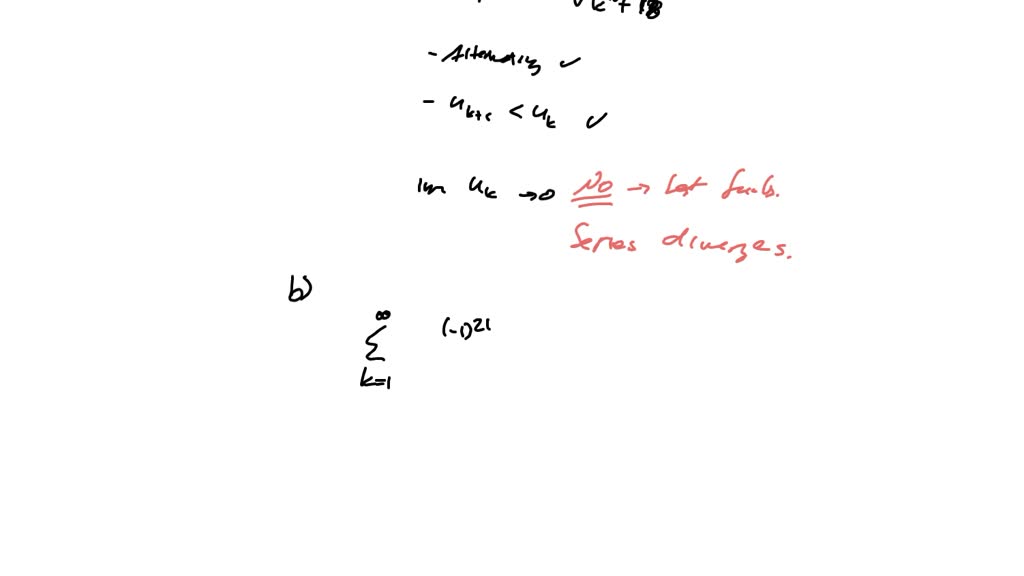 √k + 18
- Alternating ✓
- u_{k+1} < u_k ✓
lim u_k → 0 No → test fails.
Series diverges.
b)
∞
Σ (-1)^21
k=1